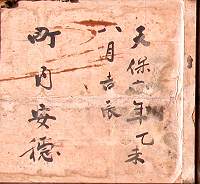 天保六年乙未
八月吉辰
町内安穏